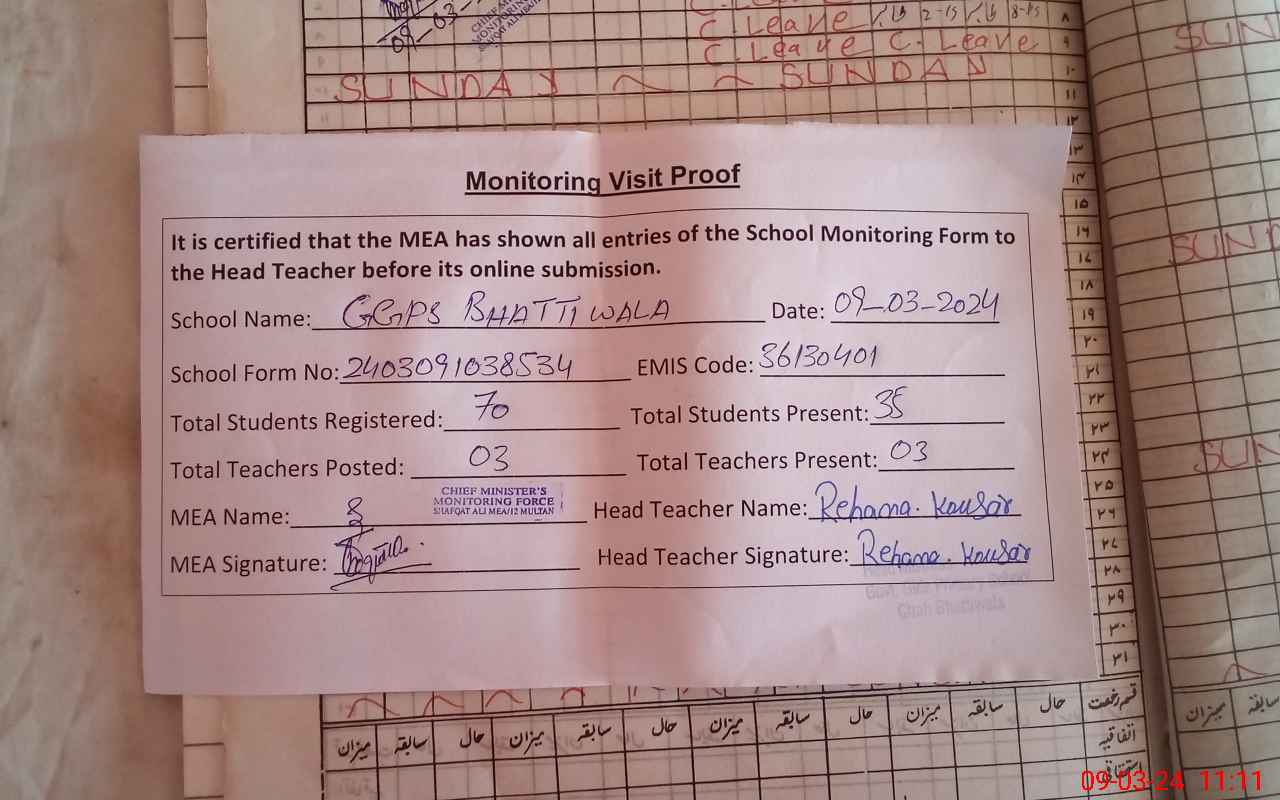 09-03-
C. Leave 2-15 8-15 ۸
C. Leave C. Leave ۹
SUNDAY SUNDAY ۱۰
۱۱
۱۲
۱۳
۱۴
۱۵
۱۶
۱۷
۱۸
۱۹
۲۰
۲۱
۲۲
۲۳
۲۴
۲۵
۲۶
۲۷
۲۸
۲۹
۳۰
۳۱
SUN
SUN
SUN
Monitoring Visit Proof
It is certified that the MEA has shown all entries of the School Monitoring Form to
the Head Teacher before its online submission.
School Name: GGPS BHATTI WALA Date: 09-03-2024
School Form No: 2403091038534 EMIS Code: 36130401
Total Students Registered: 70 Total Students Present: 35
Total Teachers Posted: 03 Total Teachers Present: 03
MEA Name: CHIEF MINISTER'S
MONITORING FORCE
SHAFQAT ALI MEA/12 MULTAN
Head Teacher Name: Rehana. Kousar
MEA Signature: Head Teacher Signature: Rehana. Kousar
Govt. Girls Primary School
Chah Bhattiwala
قسم رخصت حال سابقہ میزان حال سابقہ میزان حال سابقہ میزان
اتفاقیہ
سابقہ میزان
09-03-24 11:11